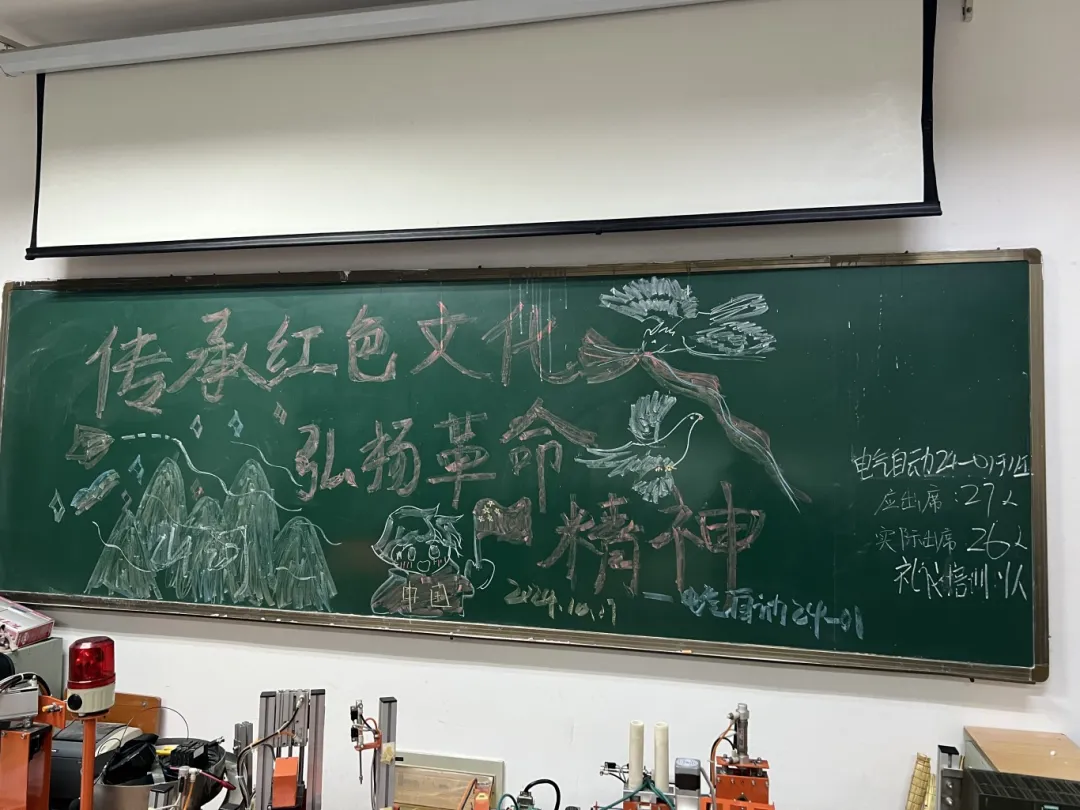 传承红色文化
弘扬革命
精神
中国
2024.10.17
一电气自动24-01
电气自动24-01班
应出席:27人
实际出席:26人
礼仪培训:1人